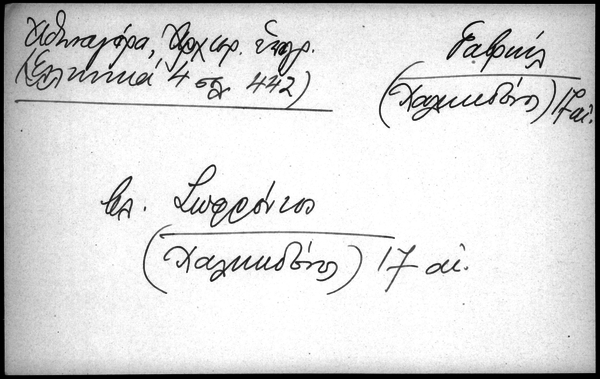 Ἀθηναγόρα, Ἀρχιερ. ἐπιγρ.
(Ἑλληνικά 4 σελ. 442)
Γαβριήλ
(Χαλκηδόνος) 17 αἰ.
Βλ. Σωφρόνιος
(Χαλκηδόνος) 17 αἰ.